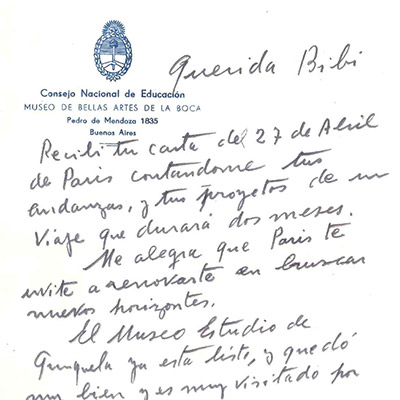 Querida Bibi
Consejo Nacional de Educación
MUSEO DE BELLAS ARTES DE LA BOCA
Pedro de Mendoza 1835
Buenos Aires
Recibí tu carta del 27 de Abril
de Paris contandome tus
andanzas, y tus proyetos de un
viaje que durará dos meses.
Me alegra que Paris te
invite a renovarte en buscar
nuevos horizontes.
El Museo Estudio de
Qunquela ya esta listo, y quedó
muy bien y es muy visitado por